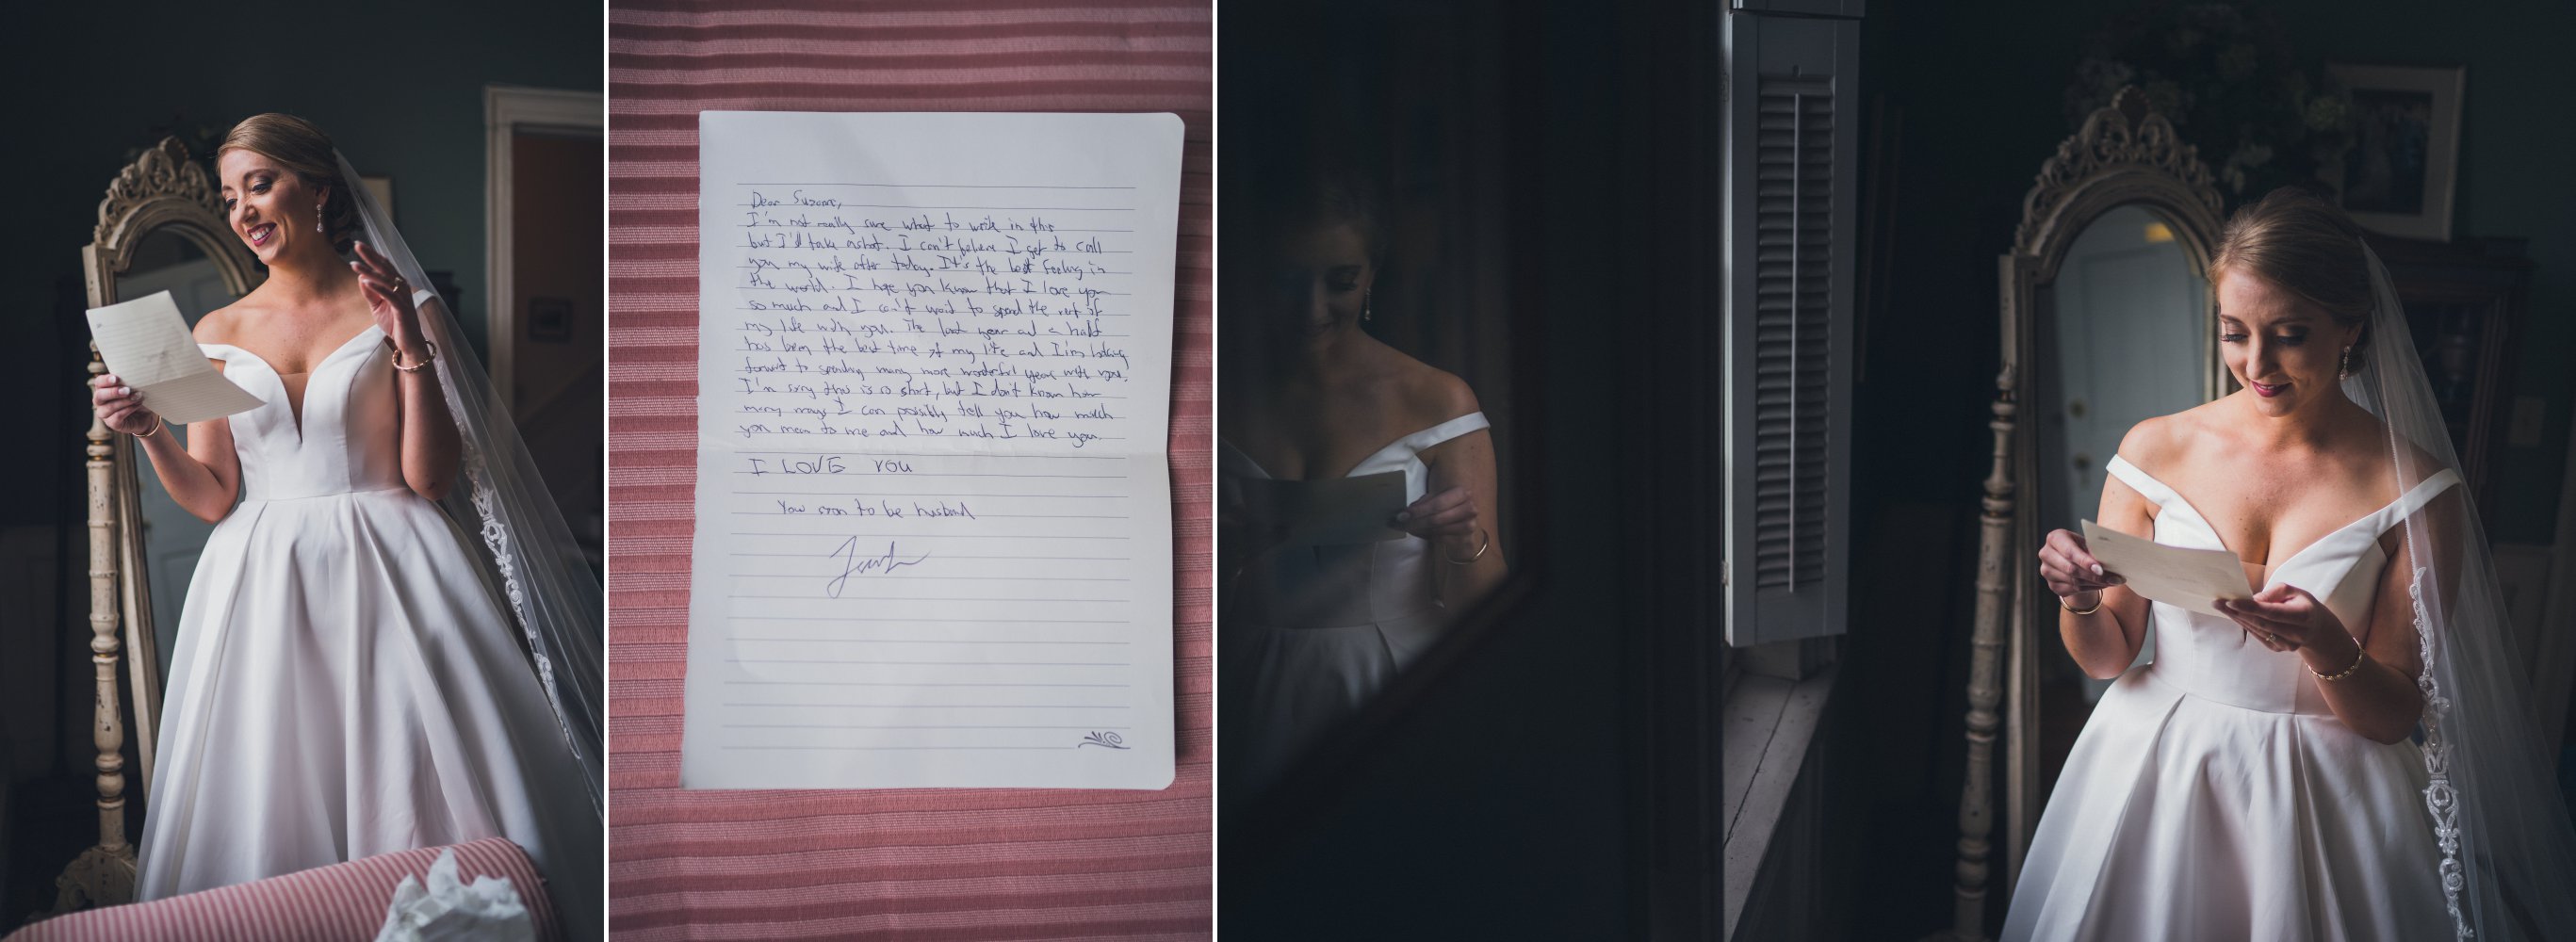 Dear Suzanne,
I'm not really sure what to write in this
but I'll take a shot. I can't believe I get to call
you my wife after today. It's the best feeling in
the world. I hope you know that I love you
so much and I can't wait to spend the rest of
my life with you. The last year and a half
has been the best time of my life and I'm looking
forward to spending many more wonderful years with you.
I'm sorry this is so short, but I don't know how
many ways I can possibly tell you how much
you mean to me and how much I love you.
I LOVE YOU
Your soon to be husband